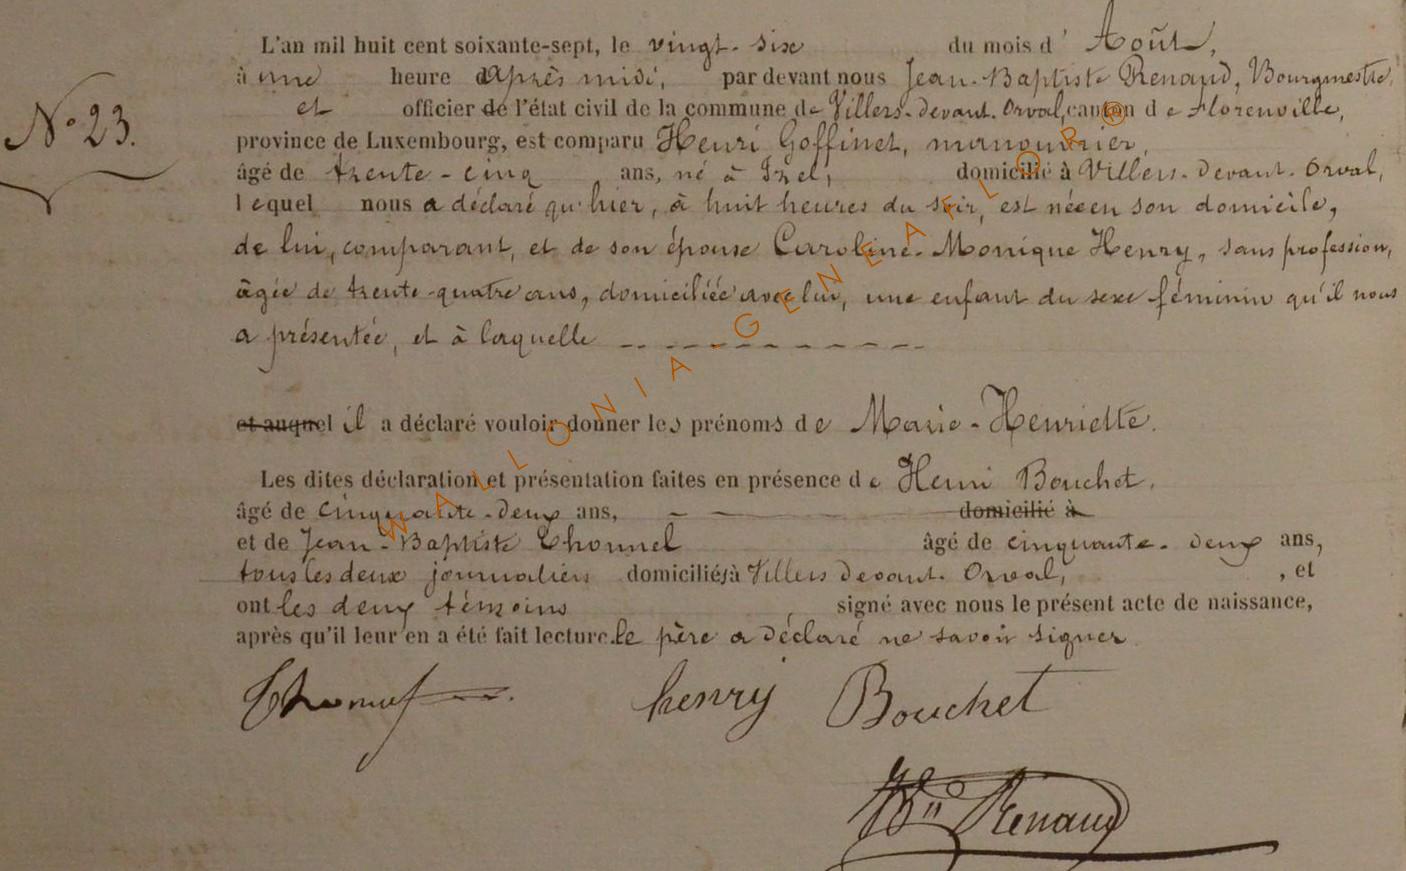 L'an mil huit cent soixante-sept, le vingt-six du mois d' Août,
à une heure d'Après midi, par devant nous Jean-Baptiste Renaud, Bourgmestre,
et officier de l'état civil de la commune de Villers-devant-Orval, canton de Florenville,
N° 23.
province de Luxembourg, est comparu Henri Goffinet, manouvrier,
âgé de trente-cinq ans, né à Izel, domicilié à Villers-devant-Orval,
lequel nous a déclaré qu'hier, à huit heures du soir, est née en son domicile,
de lui, comparant, et de son épouse Caroline-Monique Henry, sans profession,
âgée de trente-quatre ans, domiciliée avec lui, une enfant du sexe féminin qu'il nous
a présentée, et à laquelle
et auquel il a déclaré vouloir donner les prénoms de Marie-Henriette.
Les dites déclaration et présentation faites en présence de Henri Bouchet,
âgé de cinquante-deux ans, domicilié à
et de Jean-Baptiste Thonnel âgé de cinquante-deux ans,
tous les deux journaliers domiciliés à Villers devant-Orval, , et
ont les deux témoins signé avec nous le présent acte de naissance,
après qu'il leur en a été fait lecture. le père a déclaré ne savoir signer.
henry Bouchet
Renaud
WALLONIA GENEAFLOR®